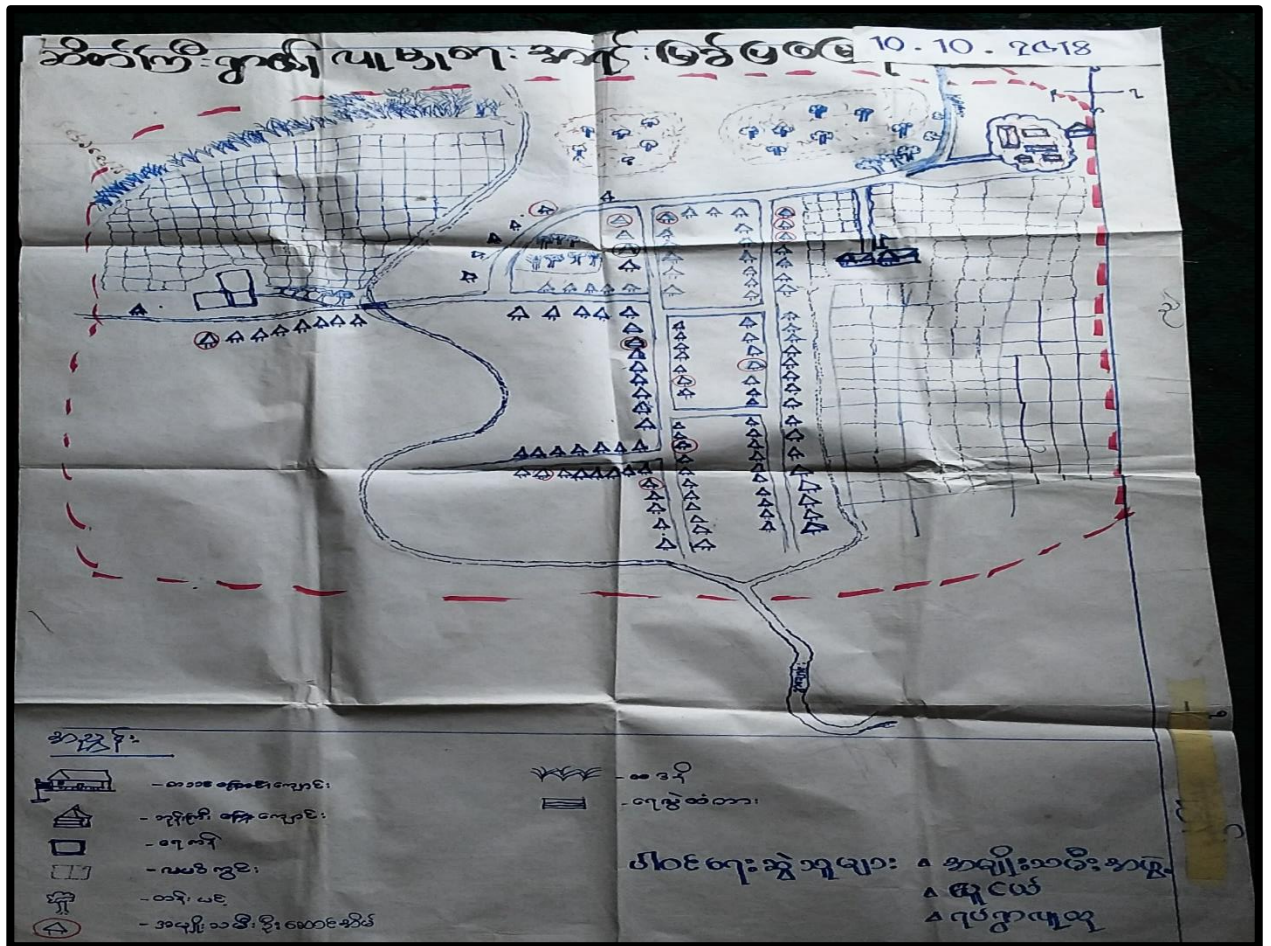 ဆိတ်ကြီးရွာ၏ လူမှုစားအရင်းမြစ်ပြမြေပုံ 10.10.2018
အညွှန်း
- စာသင်ကျောင်း
- ဘုန်းကြီးကျောင်း
- ရေကန်
- လယ်ကွင်း
- တန်းပင်
- အမျိုးသမီးဦးဆောင်အိမ်
- ဓနိ
- ရေလွှဲတံတား
ပါဝင်ရေးဆွဲသူများ ▵ အမျိုးသမီးအဖွဲ့
▵ လူငယ်
▵ ရပ်ရွာလူထု